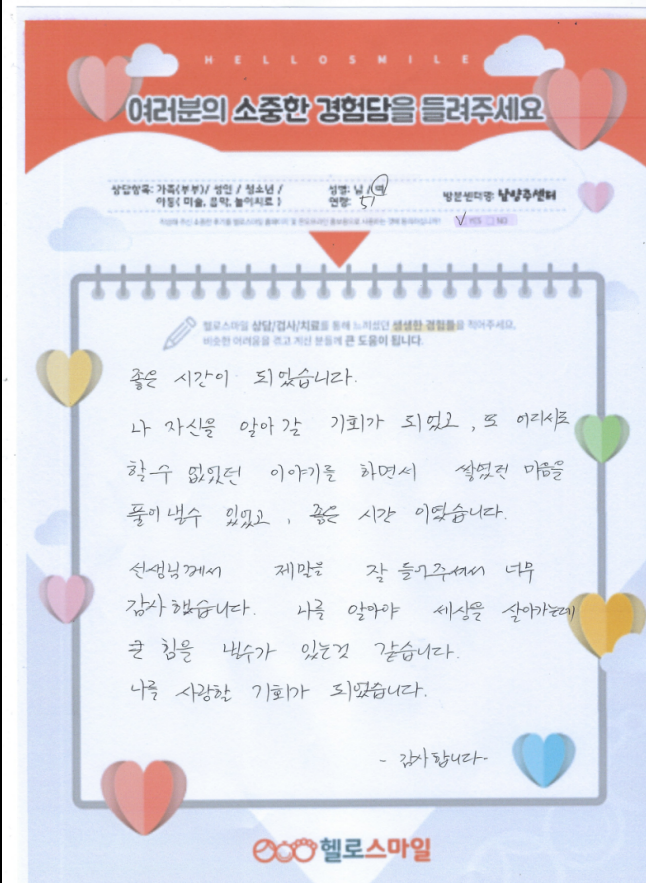 HELLOSMILE
여러분의 소중한 경험담을 들려주세요
상담항목: 가족(부부)/ 성인 / 청소년 /
아동( 미술, 음악, 놀이치료 )
성별: 남 / 여
연령: 51
방문센터명: 남양주센터
작성해 주신 소중한 후기를 헬로스마일 홈페이지 및 온오프라인 홍보용으로 사용하는 것에 동의하십니까?
V YES □ NO
헬로스마일 상담/검사/치료를 통해 느끼셨던 생생한 경험들을 적어주세요.
비슷한 어려움을 겪고 계신 분들께 큰 도움이 됩니다.
좋은 시간이 되었습니다.
나 자신을 알아 갈 기회가 되었고, 또 어디서도
할 수 없었던 이야기를 하면서 쌓였던 마음을
풀어 낼수 있었고, 좋은 시간 이였습니다.
선생님께서 제말을 잘 들어주셔서 너무
감사 했습니다. 나를 알아야 세상을 살아가는데
큰 힘을 낼수가 있는것 같습니다.
나를 사랑할 기회가 되었습니다.
- 감사 합니다 -
헬로스마일